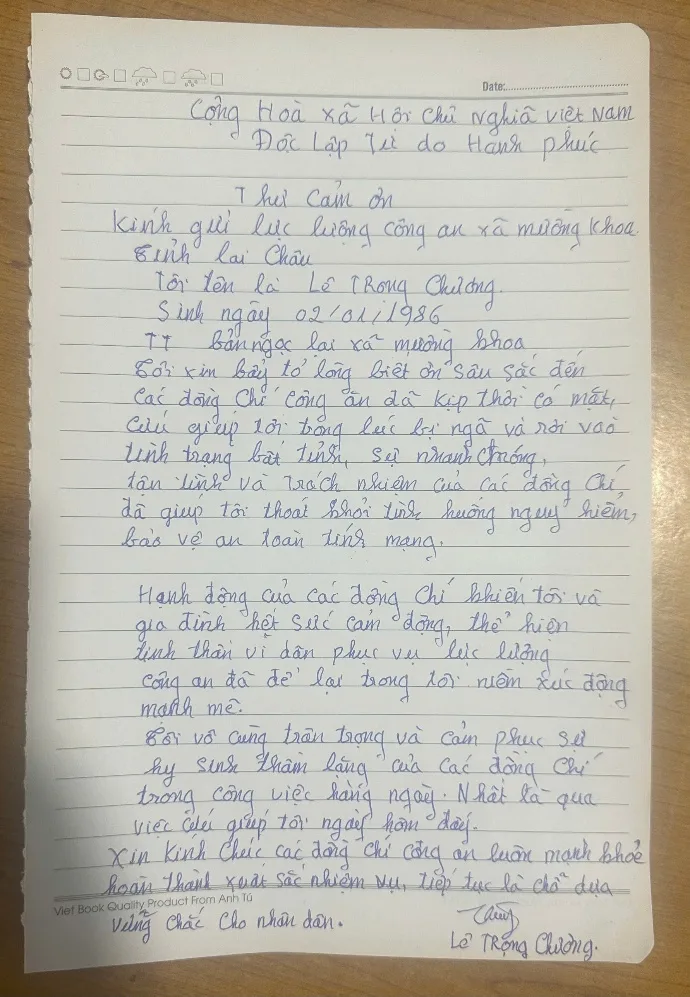 Date:
Cộng Hoà xã Hội chủ nghĩa việt Nam
Độc Lập Tự do Hạnh phúc
Thư cảm ơn
Kính gửi lực lượng công an xã mường khoa.
Tỉnh lai Châu
Tôi tên là Lê TRọng Chương.
Sinh ngày 02/01/1986
TT bản ngọc lại xã mường khoa
Tôi xin bày tỏ lòng biết ơn sâu sắc đến
các đồng chí công an đã kịp thời có mặt,
cứu giúp tôi trong lúc bị ngã và rơi vào
tình trạng bất tỉnh, sự nhanh chóng,
tận tình và trách nhiệm của các đồng chí
đã giúp tôi thoát khỏi tình huống nguy hiểm,
bảo vệ an toàn tính mạng.
Hành động của các đồng chí khiến tôi và
gia đình hết sức cảm động, thể hiện
tinh thần vì dân phục vụ lực lượng
công an đã để lại trong tôi niềm xúc động
mạnh mẽ.
Tôi vô cùng trân trọng và cảm phục sự
hy sinh thầm lặng của các đồng chí
trong công việc hàng ngày. Nhất là qua
việc cứu giúp tôi ngày hôm đấy.
Xin kính chúc các đồng chí công an luôn mạnh khoẻ
hoàn thành xuất sắc nhiệm vụ, tiếp tục là chỗ dựa
Viet Book Quality Product From Anh Tú
vững chắc cho nhân dân.
Lê TRọng Chương.